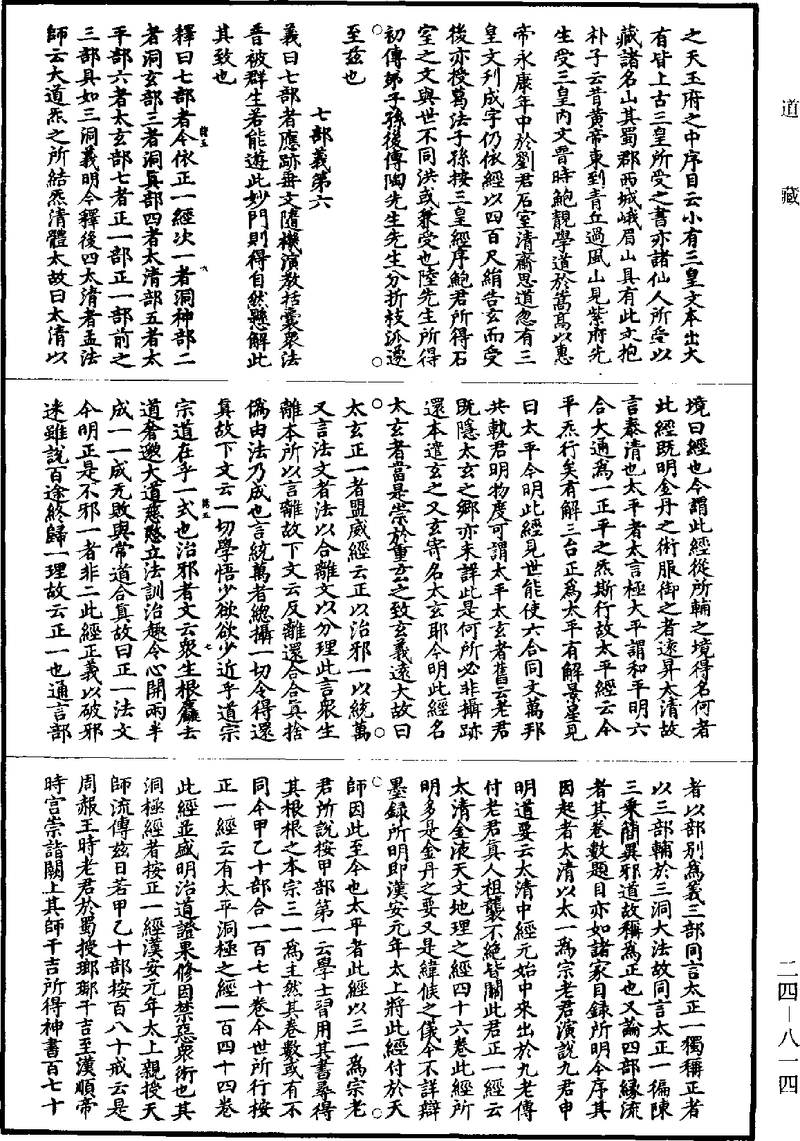 道藏
之天玉府之中序目云小有三皇文本出大
有皆上古三皇所受之書亦諸仙人所受以
藏諸名山其蜀郡西城峨眉山具有此文抱
朴子云昔黃帝東到青丘過風山見紫府先
生受三皇內文晉時鮑靚學道於嵩高以惠
帝永康年中於劉君石室清齋思道忽有三
皇文刊成字仍依經以四百尺絹告玄而受
後亦授葛法子孫按三皇經序鮑君所得石
室之文與世不同洪或兼受也陸先生所得
初傳弟子孫後傳陶先生先生分折枝派遂
至茲也
七部義第六
義曰七部者應跡垂文隨機演教括囊衆法
普被群生若能遊此妙門則得自然懸解此
其致也
釋曰七部者今依正一經次一者洞神部二
者洞玄部三者洞真部四者太清部五者太
平部六者太玄部七者正一部正一部前之
三部具如三洞義明今釋後四太清者孟法
師云大道炁之所結炁清體太故曰太清以
境曰經也今謂此經從所輔之境得名何者
此經既明金丹之術服御之者遠昇太清故
言泰清也太平者太言極大平謂和平明六
合大通爲一正平之炁斯行故太平經云今
平炁行矣有解三台正爲太平有解景星見
曰太平今明此經見世能使六合同文萬邦
共軌君明物度可謂太平太玄者舊云老君
既隱太玄之鄉亦未詳此是何所必非攝跡
還本遣玄之又玄寄名太玄耶今明此經名
太玄者當是崇於重玄之致玄義遠大故曰
太玄正一者盟威經云正以治邪一以統萬
又言法文者法以合離文以分理此言衆生
離本所以言離故下文云反離還合合真捨
僞由法乃成也言統萬者總攝一切令得還
真故下文云一切學悟少欲欲少近乎道宗
宗道在乎一式也治邪者文云衆生根麤去
道奢邈大道慈愍立法訓治趣令心開兩半
成一一成无敗與常道合真故曰正一法文
今明正是不邪一者非二此經正義以破邪
迷雖說百途終歸一理故云正一也通言部
者以部別爲義三部同言太正一獨稱正者
以三部輔於三洞大法故同言太正一徧陳
三乘簡異邪道故稱爲正也又論四部緣流
者其卷數題目亦如諸家目錄所明今序其
因起者太清以太一爲宗老君演說九君申
明道要云太清中經元始中來出於九老傳
付老君真人祖襲不絕皆關此君正一經云
太清金液天文地理之經四十六卷此經所
明多是金丹之要又是緯候之儀今不詳辯
墨錄所明即漢安元年太上將此經付於天
師因此至今也太平者此經以三一爲宗老
君所說按甲部第一云學士習用其書尋得
其根根之本宗三一爲主然其卷數或有不
同今甲乙十部合一百七十卷今世所行按
正一經云有太平洞極之經一百四十四卷
此經並盛明治道證果修因禁忌衆術也其
洞極經者按正一經漢安元年太上親授天
師流傳茲日若甲乙十部按百八十戒云是
周赧王時老君於蜀授瑯琊干吉至漢順帝
時宮崇詣闕上其師干吉所得神書百七十
二四—八一四